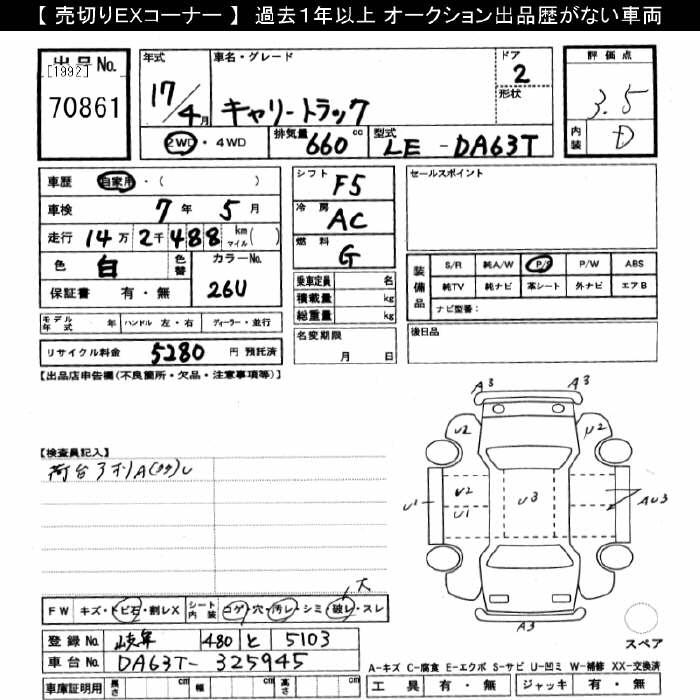 【 売切りEXコーナー 】 過去１年以上 オークション出品歴がない車両
出品No.
[1992]
70861
年式
17/4月
車名・グレード
キャリートラック
ドア
2
形状
評価点
3.5
内装
D
2WD・4WD
排気量 660 cc
型式 LE-DA63T
車歴 自家用・( )
車検 7年 5月
走行 14万 2千 488 km マイル( )
色 白 色替 カラーNo. 26U
保証書 有・無
モデル年式 年 ハンドル 左・右 ディーラー・並行
リサイクル料金 5280 円 預託済
シフト F5
冷房 AC
燃料 G
乗車定員 名
積載量 kg
総重量 kg
名変期限
月 日
セールスポイント
装備品
S/R 純A/W P/S P/W ABS
純TV 純ナビ 革シート 外ナビ エアB
ナビ型番:
後日品
【出品店申告欄(不良箇所・欠品・注意事項等)】
【検査員記入】
荷台アオリA(タタ)U
A3 A3
U2 U2
U1 U2 U1 U3 AU3
A3
スペア
大
FW キズ・トビ石・割レX シート内装 コゲ・穴・汚レ・シミ・破レ・スレ
登録No. 岐阜 480 と 5103
車台No. DA63T-325945
車庫証明用 長さ cm 幅 cm 高さ cm
A-キズ C-腐食 E-エクボ S-サビ U-凹ミ W-補修 XX-交換済
工具 有・無 ジャッキ 有・無